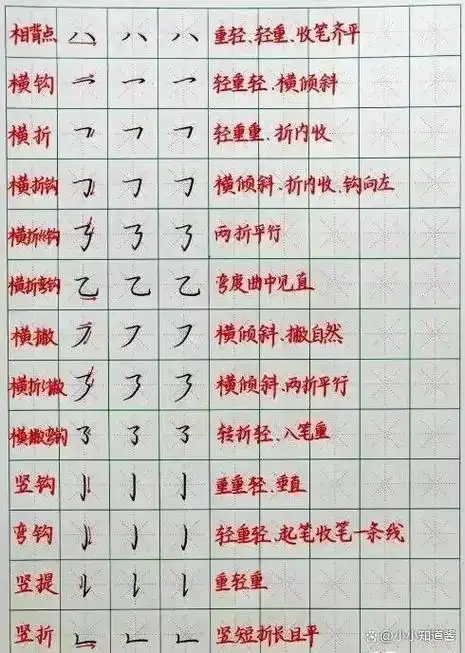 相背点 八 八 八 重轻、轻重、收笔齐平
横钩 乛 乛 乛 轻重轻、横倾斜
横折 𠃍 𠃍 𠃍 轻重重、折内收
横折钩 𠃌 𠃌 𠃌 横倾斜、折内收、钩向左
横折折钩 𠄎 𠄎 𠄎 两折平行
横折弯钩 乙 乙 乙 弯度曲中见直
横撇 ㇇ ㇇ ㇇ 横倾斜、撇自然
横折折撇 ㇋ ㇋ ㇋ 横倾斜、两折平行
横撇弯钩 ㇌ ㇌ ㇌ 转折轻、入笔重
竖钩 亅 亅 亅 重重轻、垂直
弯钩 ㇁ ㇁ ㇁ 轻重轻、起笔收笔一条线
竖提 𠄌 𠄌 𠄌 重轻重
竖折 𠃊 𠃊 𠃊 竖短折长且平
小小知道酱